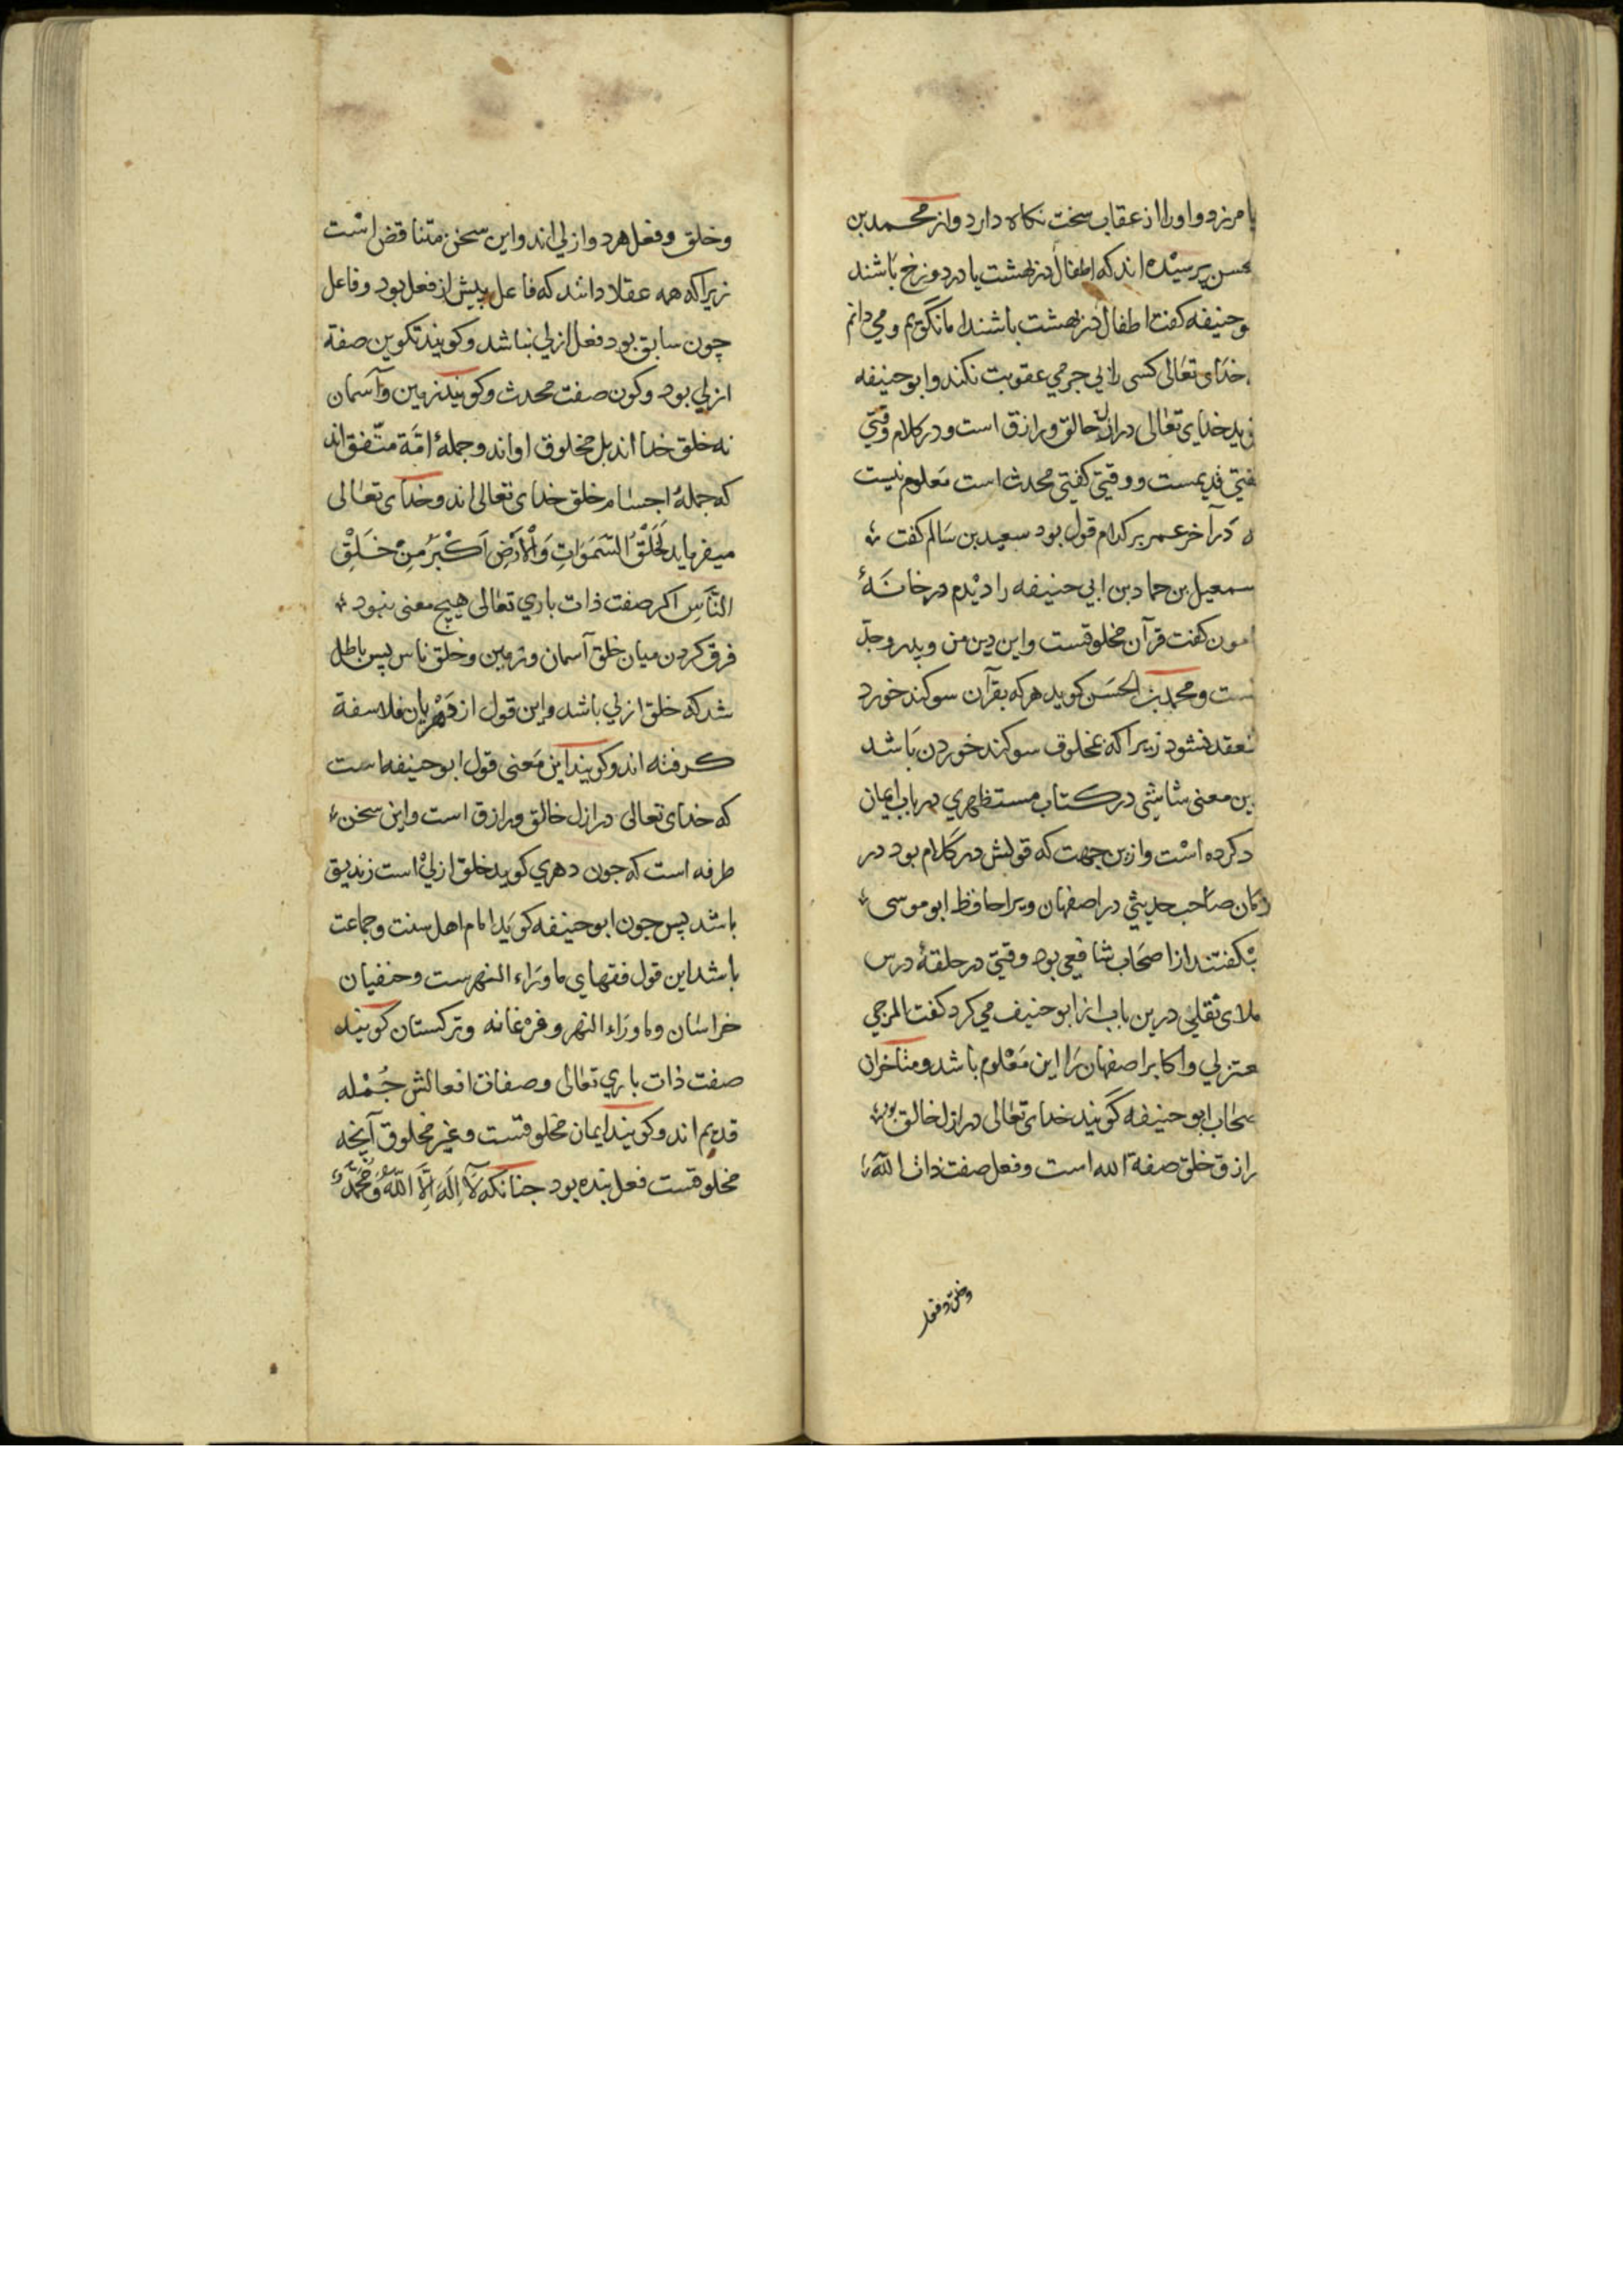 بامرزد و او را از عقاب سخت نکاه دارد و از محمد بن
حسن پرسیده اند که اطفال در بهشت یا در دوزخ باشند
بوحنیفه کفت اطفال در بهشت باشند اما نکویم و می دانم
خدای تعالی کسی را بی جرمی عقوبت نکند و ابوحنیفه
کوید خدای تعالی در ازل خالق و رازق است و در کلام وقتی
کفتی قدیمست و وقتی کفتی محدث است معلوم نیست
که در آخر عمر بر کدام قول بود سعید بن سالم کفت
اسمعیل بن حماد بن ابی حنیفه را دیدم در خانهٔ
مامون کفت قرآن مخلوقست و این دین من و پدر و جدّ
منست و محمد بن الحسن کوید هر که بقرآن سوکند خورد
منعقد نشود زیرا که بمخلوق سوکند خوردن باشد
این معنی شاشی در کتاب مستظهری در باب ایمان
یاد کرده است و ازین جهت که قولش در کلام بود در
دکان صاحب حدیثی در اصفهان ویرا حافظ ابو موسی
بکفتند از اصحاب شافعی بود وقتی در حلقهٔ درس
املای نقلی درین باب از ابو حنیف می کرد کفت المرجی
معتزلی و اکابر اصفهان را این معلوم باشد و متاخران
اصحاب ابو حنیفه کویند خدای تعالی در ازل خالق بود
رازق خلق صفة الله است و فعل صفت ذات الله
وخلق وفعل
وخلق و فعل هر دو ازلی اند و این سخن متناقض است
زیرا که همه عقلا دانند که فاعل پیش از فعل بود و فاعل
چون سابق بود فعل ازلی نباشد و کویند تکوین صفة
ازلی بود و کون صفت محدث و کویند زمین و آسمان
نه خلق خدا اند بل مخلوق او اند و جملهٔ امّة متّفق اند
که جملهٔ اجسام خلق خدای تعالی اند و خدای تعالی
میفرماید لَخَلْقُ السَّمَوَاتِ وَالْاَرْضِ اَكْبَرُ مِنْ خَلْقِ
النَّاسِ اکر صفت ذات باری تعالی هیچ معنی نبود
فرق کردن میان خلق آسمان و زمین و خلق ناس پس باطل
شد که خلق ازلی باشد و این قول از دهریان فلاسفة
کرفته اند و کویند این معنی قول ابو حنیفه است
که خدای تعالی در ازل خالق و رازق است و این سخن
طرفه است که جون دهری کوید خلق ازلی است زندیق
باشد پس جون ابو حنیفه کوید امام اهل سنت و جماعت
باشد این قول فقهای ماوراء النهرست و حنفیان
خراسان و ماوراء النهر و فرغانه و ترکستان کویند
صفت ذات باری تعالی و صفات افعالش جُمْله
قدیم اند و کویند ایمان مخلوقست و غیر مخلوق آنجه
مخلوقست فعل بنده بود جنانکه لَا اِلَهَ اِلَّا اللهُ وَ مُحَمَّدٌ